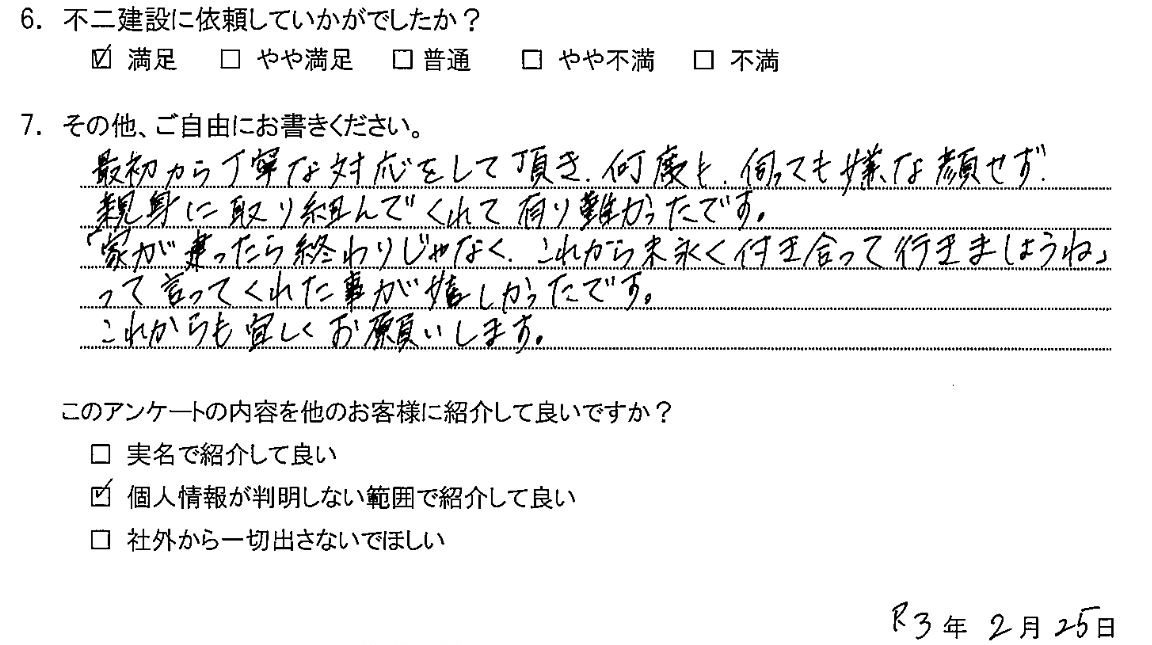 6. 不二建設に依頼していかがでしたか？
☑ 満足 □ やや満足 □ 普通 □ やや不満 □ 不満
7. その他、ご自由にお書きください。
最初から丁寧な対応をして頂き、何度も、伺っても嫌な顔せず、
親身に取り組んでくれて有り難かったです。
「家が建ったら終わりじゃなく、これから末永く付き合って行きましょうね」
って言ってくれた事が嬉しかったです。
これからも宜しくお願いします。
このアンケートの内容を他のお客様に紹介して良いですか？
□ 実名で紹介して良い
☑ 個人情報が判明しない範囲で紹介して良い
□ 社外から一切出さないでほしい
R3年 2月 25日